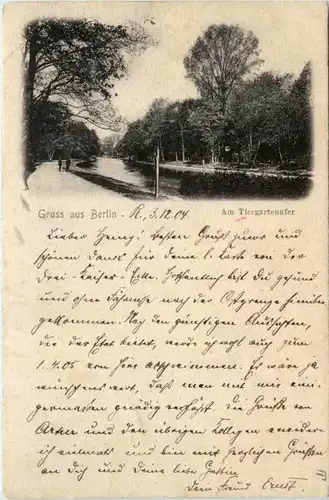 Gruss aus Berlin - R., 3.12.04. Am Tiergartenufer
Lieber Heinz! Besten Gruß zuvor und
schönen Dank für deine l. Karte von der
Drei-Kaiser-Ecke. Hoffentlich bist du gesund
und ohne nach der Ostgrenze
gekommen. Nach den günstigen Aussichten,
die der Etat bietet, werde ich wohl auch zum
1.4.05 von hier abschwimmen. Es wäre ja
wünschenswert, daß man mit mir eini-
germaßen gnädig verfährt. Die Grüße von
und den übrigen Kollegen erwidere
ich vielmals und bin mit herzlichen Grüßen
an dich und deine liebe Gattin
dein Freund Ernst.